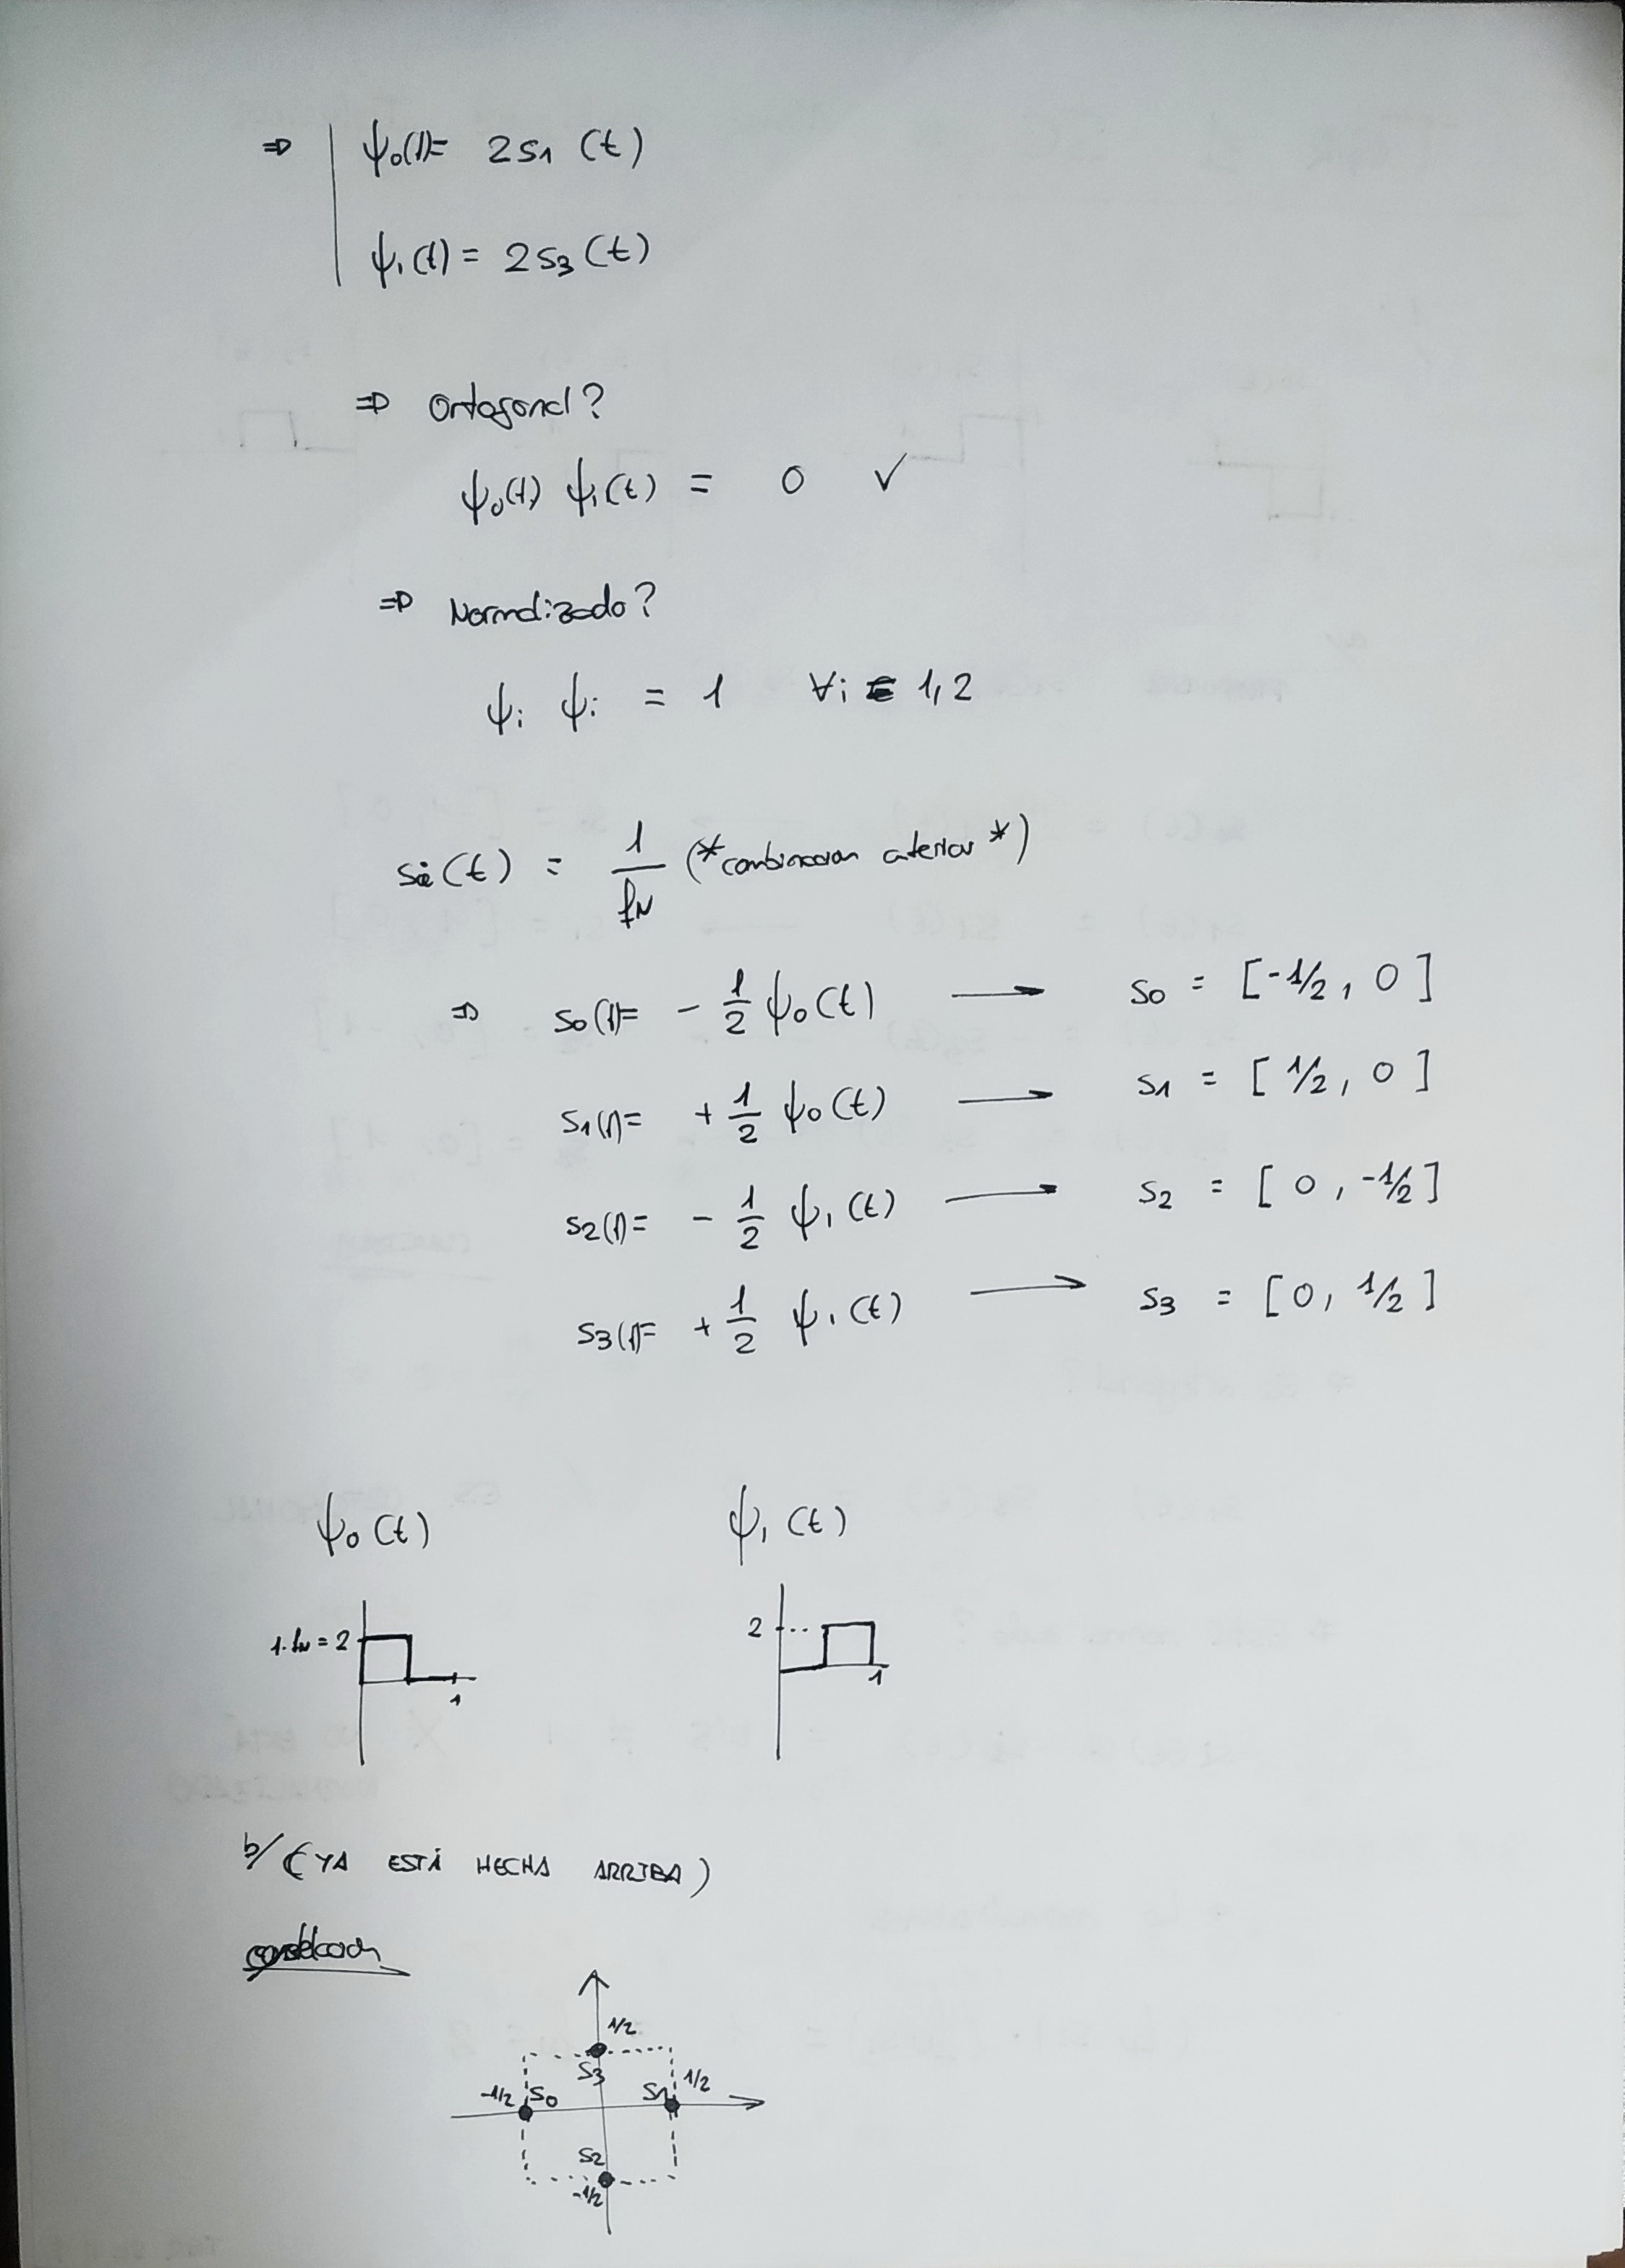 ⇒ ψ₀(t)= 2s₁(t)
ψ₁(t) = 2s₃(t)
⇒ Ortogonal?
ψ₀(t) ψ₁(t) = 0 ✓
⇒ Normalizado?
ψᵢ ψᵢ = 1 ∀i = 1,2
sᵢ(t) = 1/fₙ (*combinacion anterior*)
⇒ s₀(t)= - 1/2 ψ₀(t) → s₀ = [-1/2, 0]
s₁(t)= + 1/2 ψ₀(t) → s₁ = [1/2, 0]
s₂(t)= - 1/2 ψ₁(t) → s₂ = [0, -1/2]
s₃(t)= + 1/2 ψ₁(t) → s₃ = [0, 1/2]
ψ₀(t) ψ₁(t)
1·fₙ = 2 2
1 1
b/ (YA ESTÁ HECHA ARRIBA)
constelacion
1/2
S₃
-1/2 S₀ S₁ 1/2
S₂
-1/2